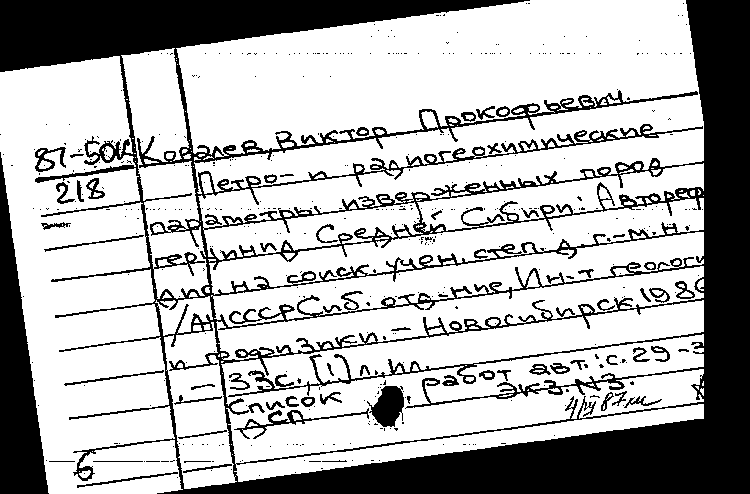 87-50К Ковалев, Виктор Прокофьевич.
218 Петро- и радиогеохимические
параметры изверженных пород
герцинид Средней Сибири: Автореф
дис. на соиск. учен. степ. д. г.-м. н.
/АН СССР Сиб. отд-ние, Ин-т геологи
и геофизики. - Новосибирск, 198
. - 33с., [1] л. ил.
Список работ авт.: с. 29-3
ДСП Экз. N3.
6